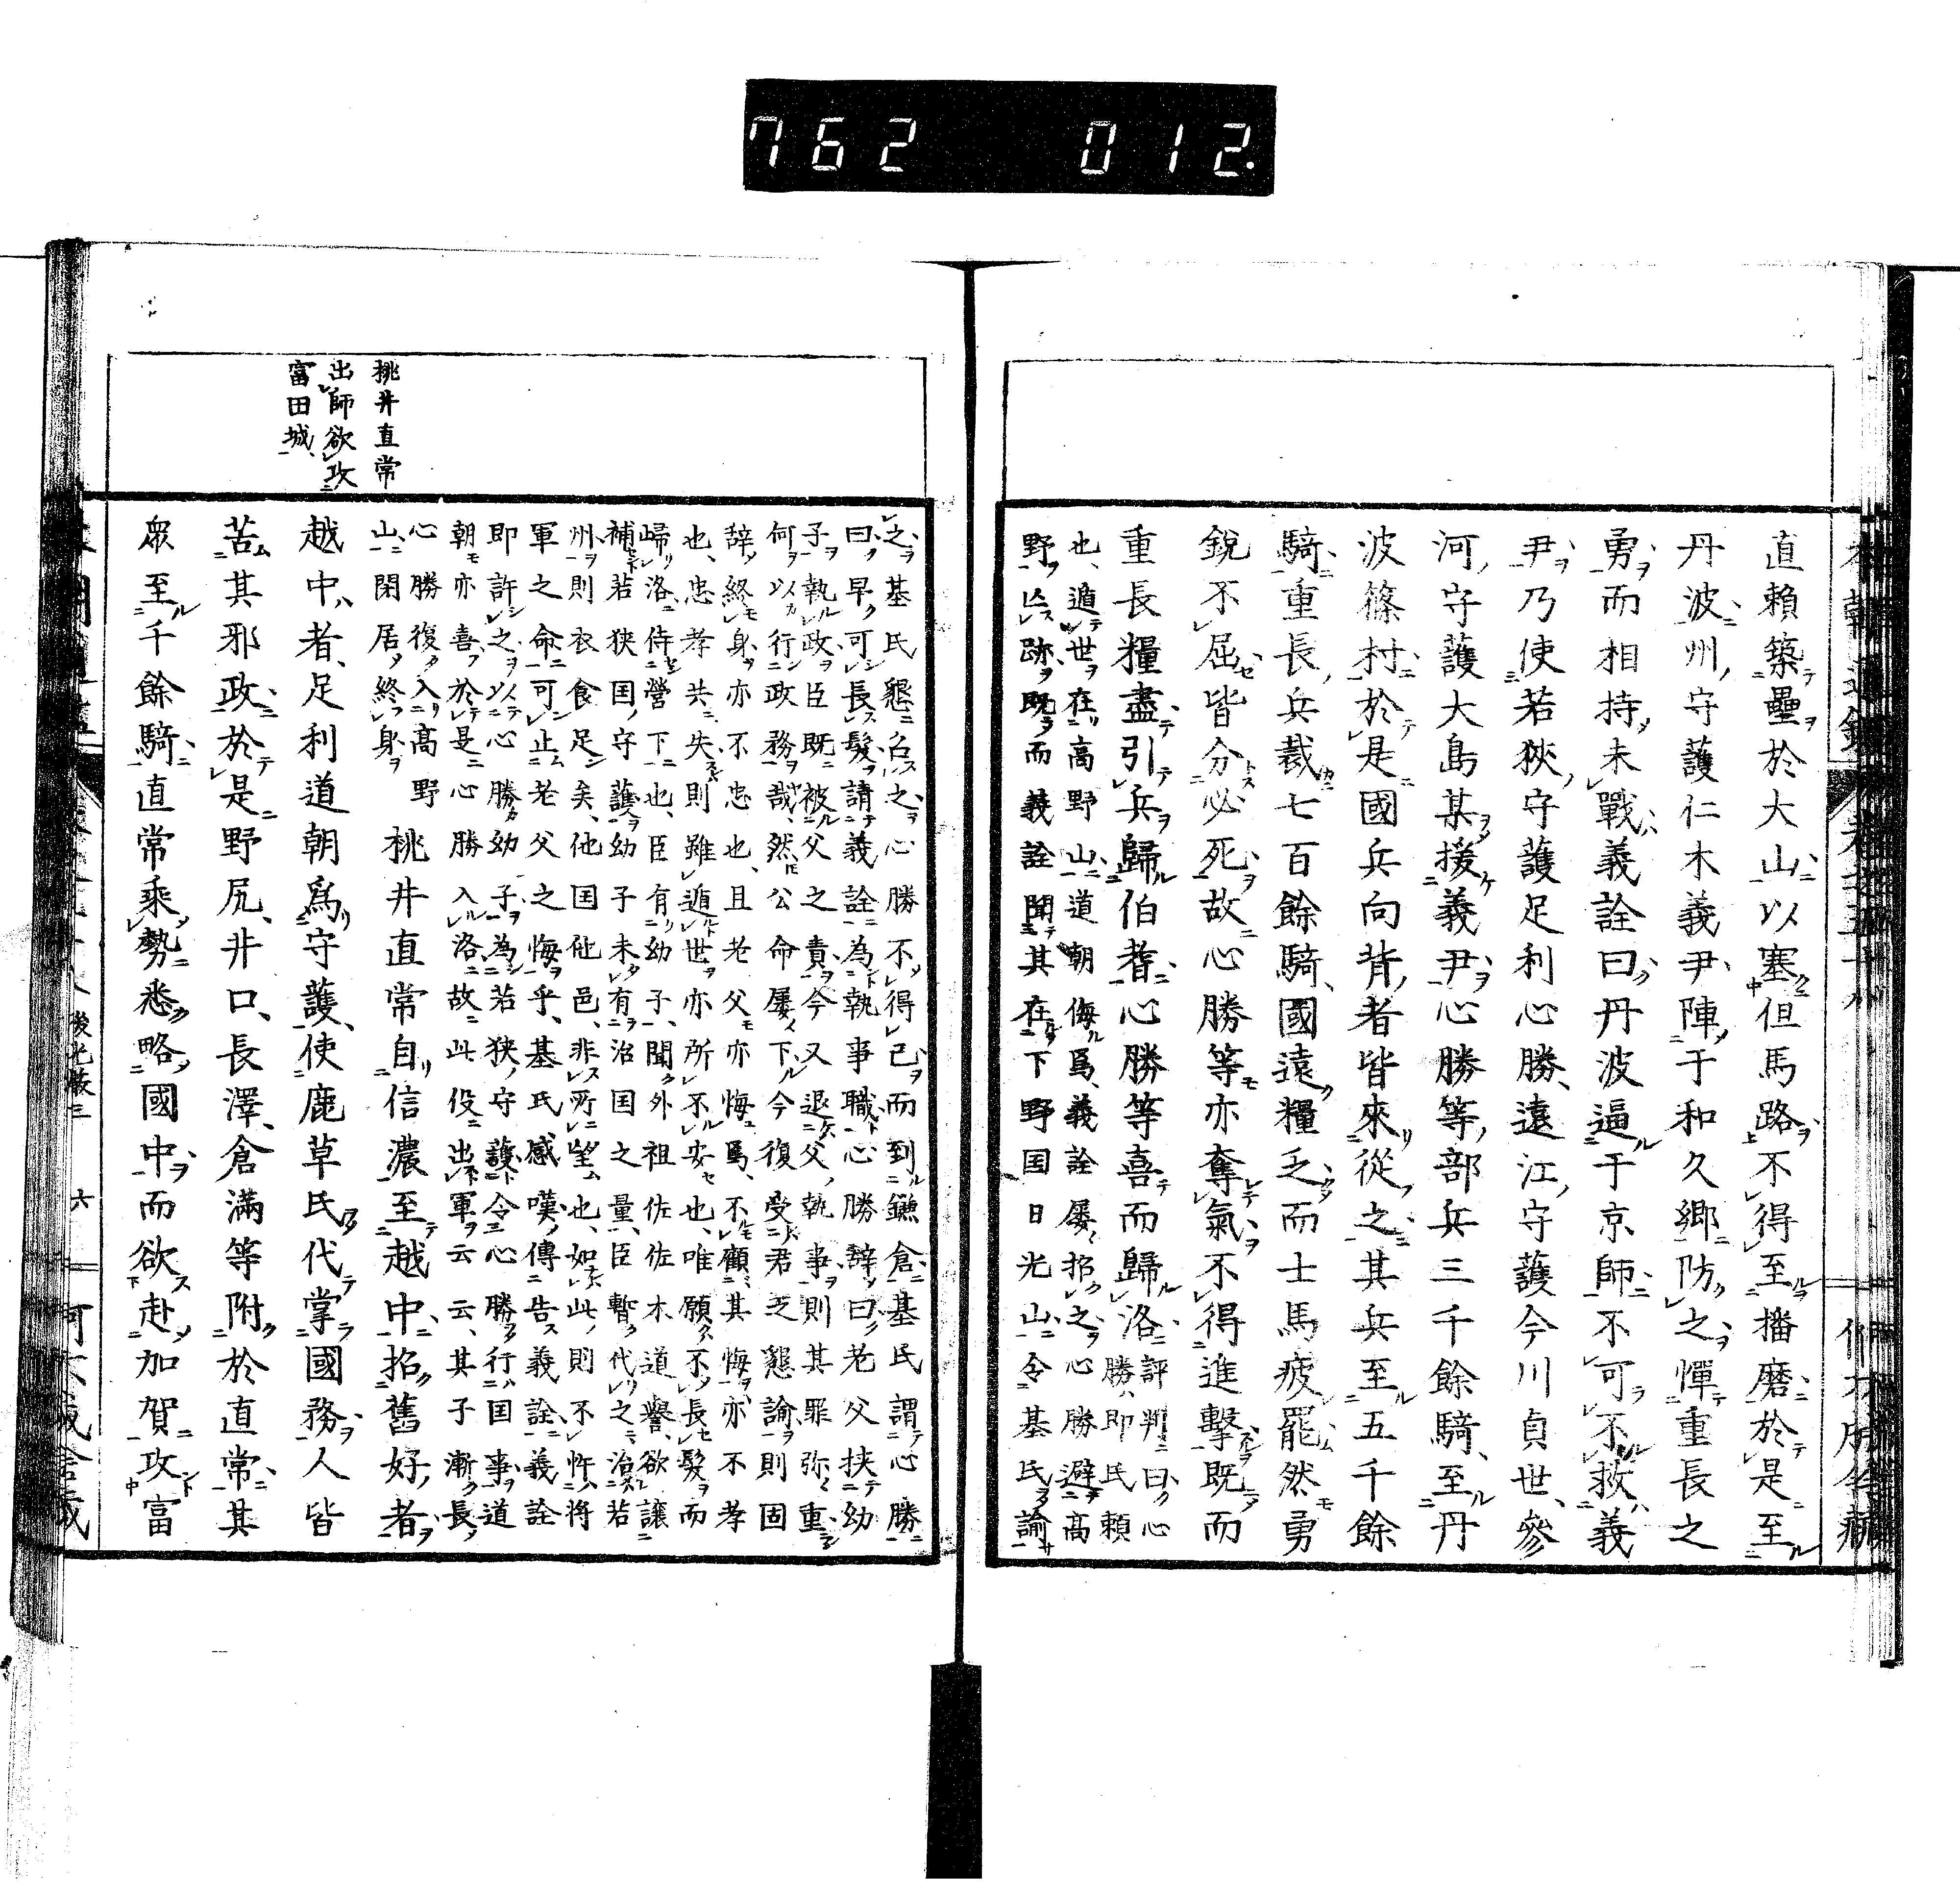 762 012.
直賴築壘於大山以塞但馬路不得至播磨於是至
丹波州守護仁木義尹陣于和久郷防之憚重長之
勇而相持未戰義詮曰丹波逼于京師不可不救義
尹乃使若狹守護足利心勝遠江守護今川貞世參
河守護大島某援義尹心勝等部兵三千餘騎至丹
波篠村於是國兵向背者皆來從之其兵至五千餘
騎重長兵裁七百餘騎國遠糧乏而士馬疲罷然勇
銳不屈皆分必死故心勝等亦奪氣不得進擊既而
重長糧盡引兵歸伯耆心勝等喜而歸洛評判曰心
勝即氏賴
也遁世在高野山道朝侮爲義詮屡招之心勝避高
野亾跡既而義詮聞其在下野国日光山令基氏諭
桃井直常
出師欲攻
富田城
之基氏懇召之心勝不得已而到鎌倉基氏謂心勝
曰早可長髮請義詮為執事職心勝辞曰老父挟幼
子執政臣既被父之責今又退父執事則其罪弥重
何以行政務哉然公命屡下今復受君之懇諭則固
辞終身亦不忠也且老父亦悔爲不顧其悔亦不孝
也忠孝共失則雖遁世亦所不安也唯願不長髮而
歸洛侍營下也臣有幼子聞外祖佐佐木道譽欲讓
補若狹国守護幼子未有治国之量臣暫代之治若
州則衣食足矣他国他邑非所望也如此則不忤將
軍之命可止老父之悔乎基氏感嘆傳告義詮義詮
即許之以心勝幼子為若狹守護令心勝行国事道
朝亦喜於是心勝入洛故此役出軍云云其子漸長
心勝復入高野
山閑居終身桃井直常自信濃至越中招舊好者
越中者足利道朝爲守護使鹿草氏代掌國務人皆
苦其邪政於是野尻井口長澤倉滿等附於直常其
衆至千餘騎直常乘勢悉略國中而欲赴加賀攻富
六